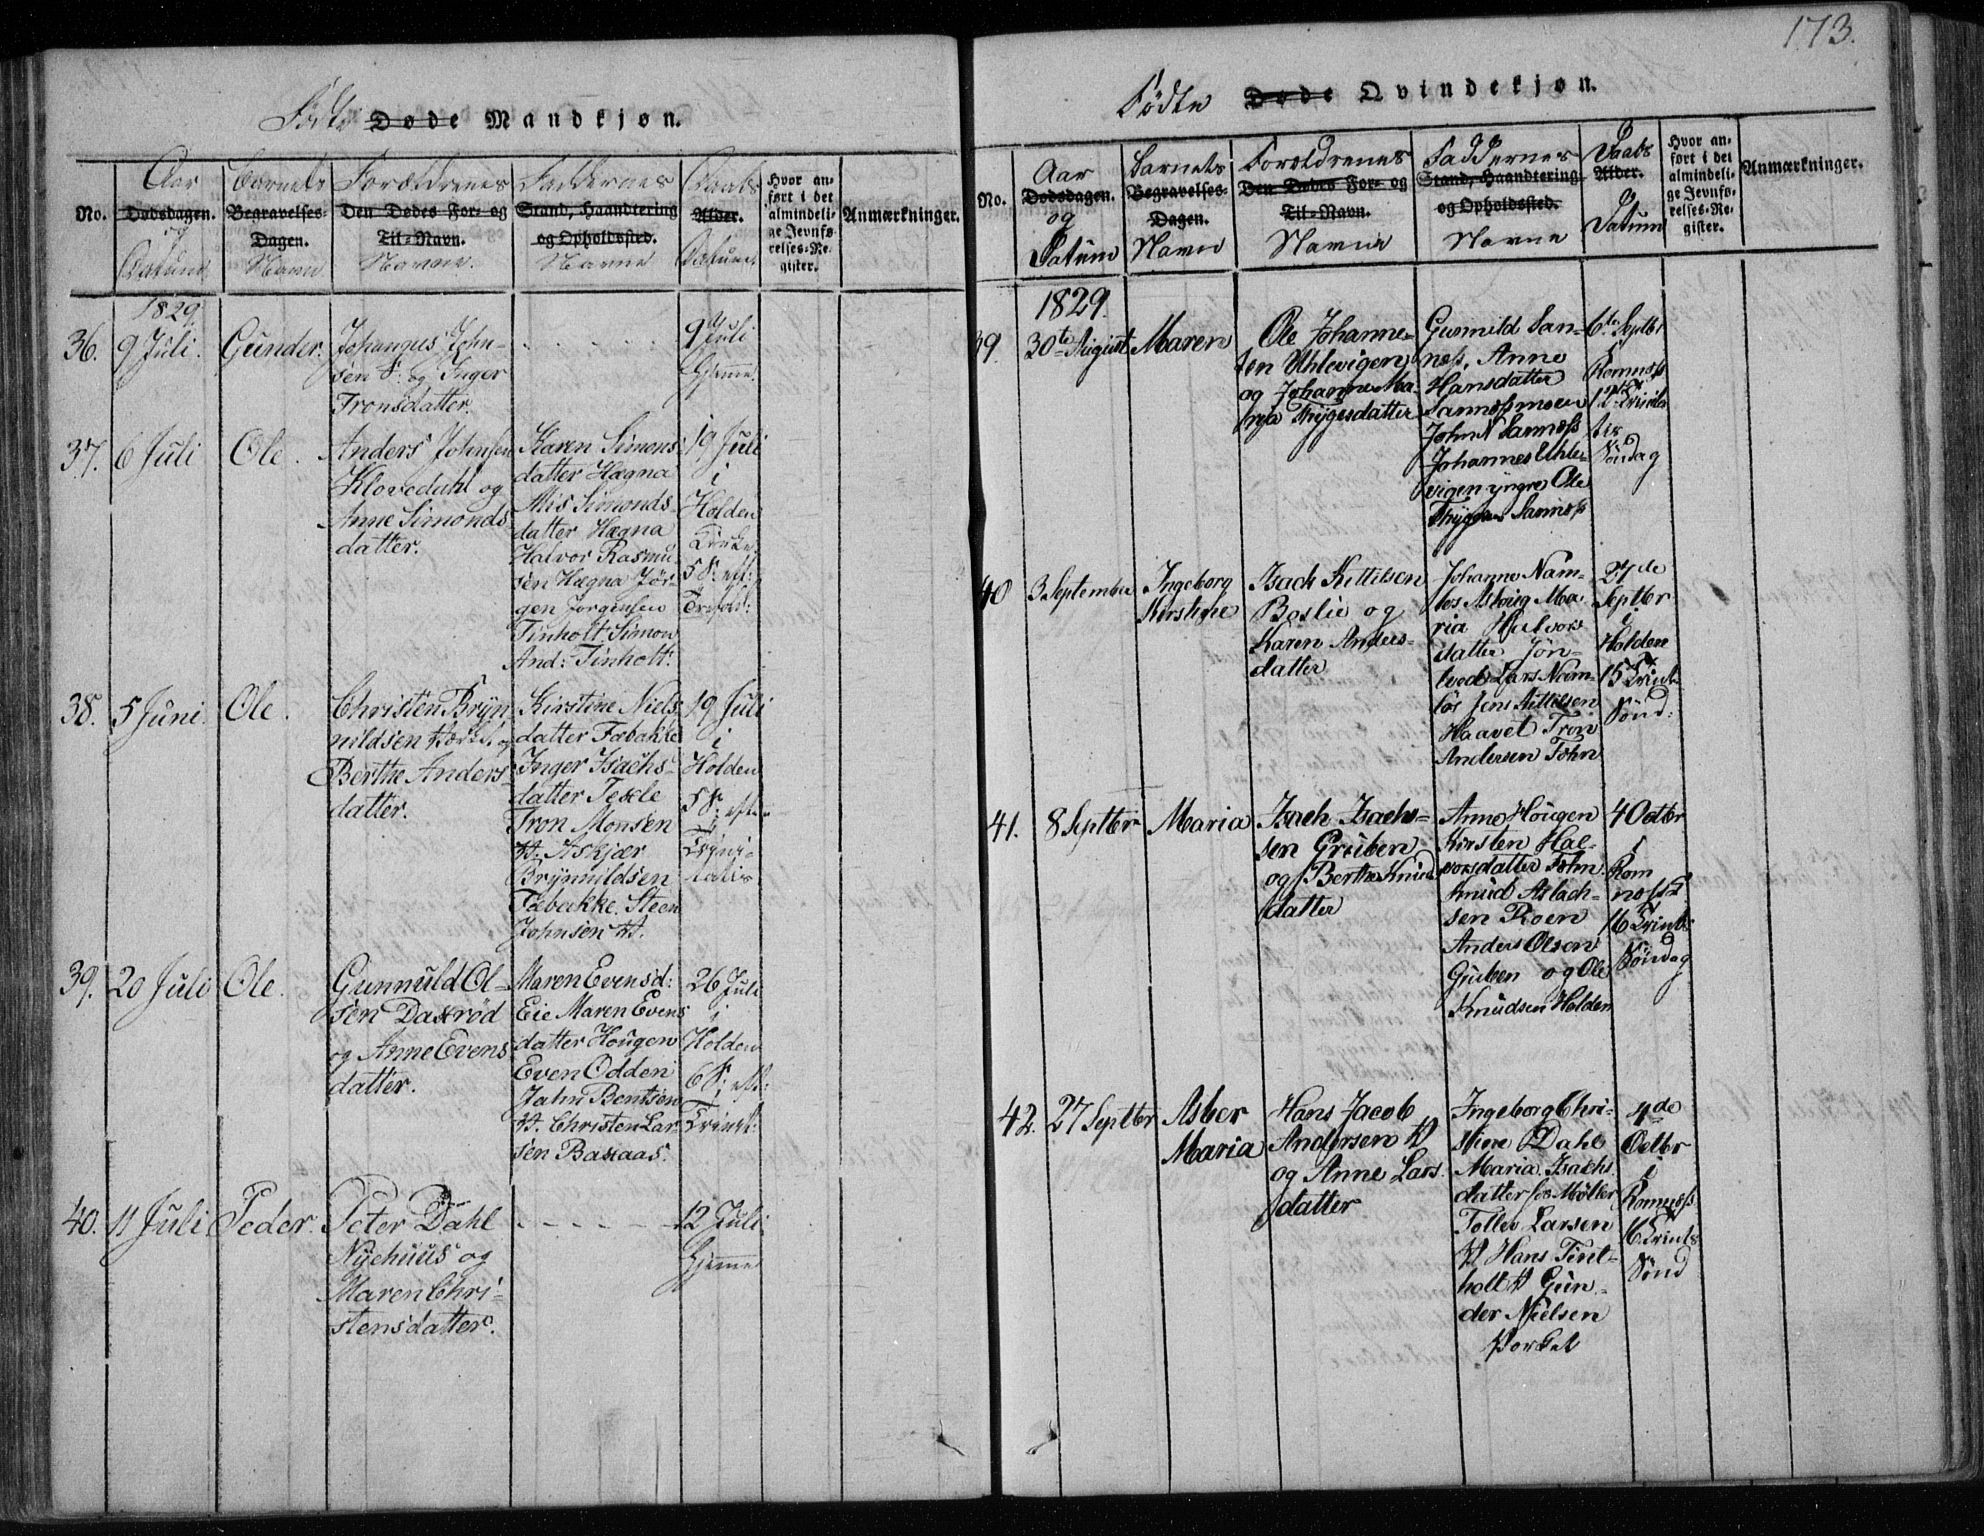 Födte Døde Mandkjøn.
No.
Aar
Dødsdagen.
og
Datum
Barnets
Begravelses-
Dagen.
Navn
Forældrenes
Den Dødes For- og
Til-Navn.
Navne.
Faddernes
Stand, Haandtering
og Opholdssted.
Navne
Daabs
Alder.
Datum
Hvor an-
ført i det
almindeli-
ge Jevnfø-
relses-Re-
gister.
Anmærkninger.
1829.
36.
9 Juli.
Gunder.
Johannes John-
sen S: og Inger
Tronsdatter.
9 Juli
Hjemme.
37.
6 Juli
Ole.
Anders Johnsen
Klovedahl og
Anne Simonds
datter.
Karen Simons
datter Hægna
Mis Simonds-
datter Hægna
Halvor Rasmu-
sen Hægna Jör-
gen Jorgensen
Tinholt. Simon
And: Tinholt.
19 Juli
i
Holden
Kirke
5 S: eft:
38.
5 Juni.
Ole.
Christen Bryn
nildsen og
Berthe Anders
datter.
Kirstine Niels
datter Fæbakke
Inger Isachs-
datter Texle
Tron Monsen
V. Askjær
Brynnildsen
Fæbakke. Steen
Johnsen V.
19 Juli
i
Holden
5 S: efter
Trini-
tatis
39.
20 Juli
Ole.
Gunnuld Ol-
sen Daxröd
og Anne Evens
datter.
Maren Evensd:
Eie Maren Evens
datter Hougen
Even Odden
John Bentsen
V. Christen Lar-
sen Baxaas.
26 Juli
i
Holden
6 S: eft:
Trinit:
40.
11 Juli
Peder.
Peter Dahl
Nyehuus og
Maren Chri-
stensdatter.
12 Juli
Hjemme
173.
Födte Døde Qvindekjøn.
No.
Aar
Dødsdagen.
og
Datum
Barnets
Begravelses-
Dagen.
Navn
Forældrenes
Den Dødes For- og
Til-Navn.
Navne
Faddernes
Stand, Haandtering
og Opholdssted.
Navne
Daabs
Alder.
Datum
Hvor an-
ført i det
almindeli-
ge Jevnfø-
relses-Re-
gister.
Anmærkninger.
1829.
39.
30te August
Maren
Ole Johanne-
sen Uhlevigen
og Johanne Ma-
ria Thygesdatter
Gunnild San-
nes, Anne
Hansdatter
Sannesmoen
John N Sannes
Johannes Uhle-
vigen yngre Ole
Thygesen Sannes
6te Septbr
i
Romnes
12te Trinita
tis
Söndag
40
3 September
Ingeborg
Kirstine
Isach Kittilsen
Boslie og
Karen Anders-
datter
Johanne Nam-
los Aslaug Ma-
ria Halvors
datter Jön-
lved Lars Nam-
lös Jens Kittilsen
Haavet Tron
Andersen Tohn
27de
Septbr
i
Holden
15 Trinit.
Sönd:
41.
8 Septbr
Maria
Isach Isachs-
sen Gruben
og Berthe Knud
datter
Anne Hougen
Kirsten Hal-
vorsdatter Tohn
Knud Aslach-
sen Roen
Anders Olsen
Gruben og Ole
Knudsen Holden
4 Octbr
i
Rom
nes
16 Trinit:
Söndag
42.
27 Septbr
Asber
Maria
Hans Jacob
Andersen V
og Anne Lars
datter
Ingeborg Chri-
stiene Dahl
Maria Isachs
datter fos Möller
Tollev Larsen
V Hans Tint-
holt V Gun-
der Nielsen
Vorket
4de
Octbr
i
Romnes
16 Trinits
Sönd